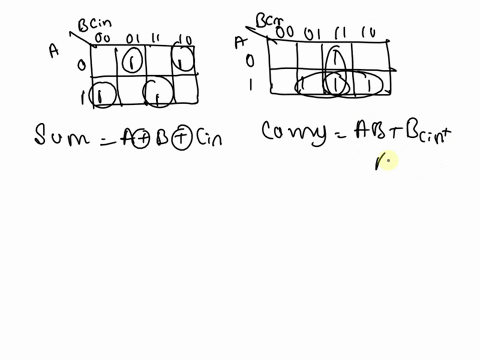 BCin
A 00 01 11 10
0 1 1
1 1 1
Sum = A⊕B⊕Cin
BCin
A 00 01 11 10
0 1
1 1 1 1
Carry = AB+BCin+